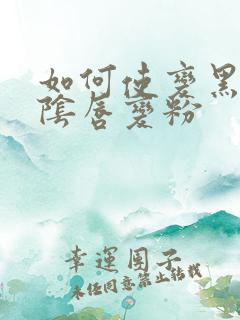 如何使变黑
陰唇变粉
幸運團子
未经同意禁止转载